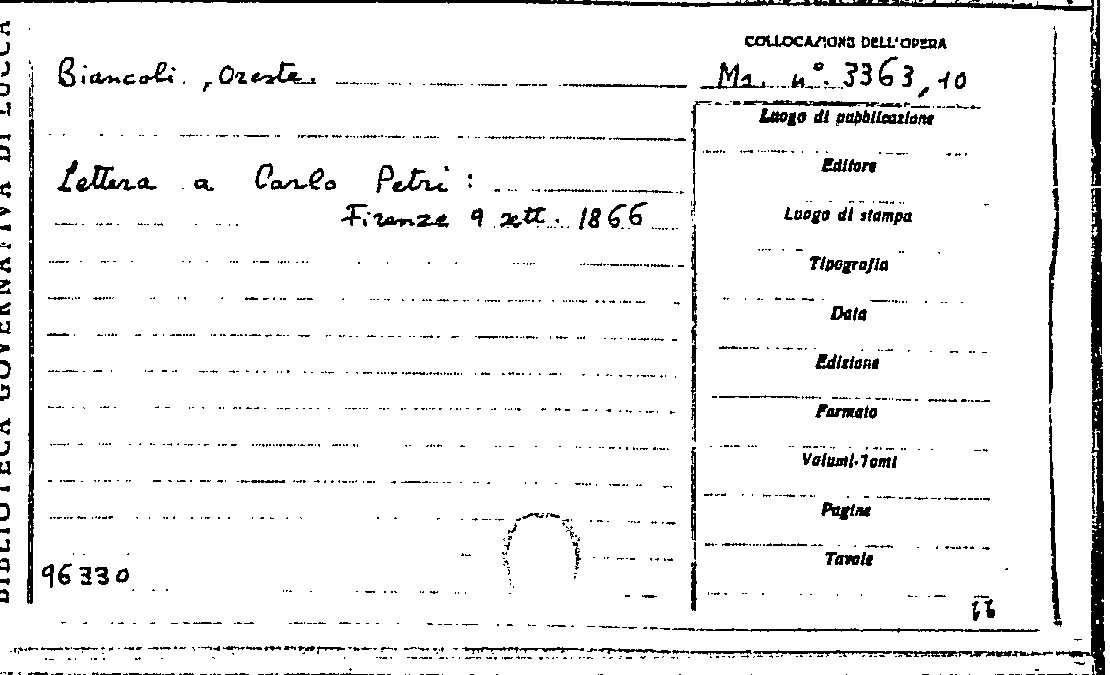 BIBLIOTECA GOVERNATIVA DI LUCCA
COLLOCAZIONE DELL'OPERA
Biancoli, Oreste.
Ms. n°. 3363,10
Luogo di pubblicazione
Editore
Lettera a Carlo Petri:
Firenze 9 sett. 1866
Luogo di stampa
Tipografia
Data
Edizione
Formato
Volumi-Tomi
Pagine
Tavole
96330